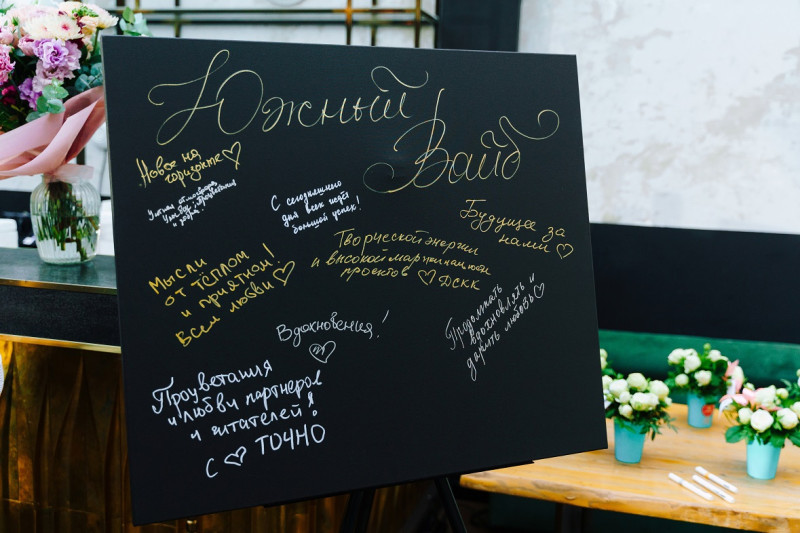 Южный
Вайб
Новое на
горизонте
и добра.
С сегодняшнего
дня всех ждёт
большой успех!
Будущее за
нами
Творческой энергии
и высокой маржинальности
проектов ДСКК
Мысли
от тёплом
и приятном!
Всем любви
Продолжать
вдохновлять и
дарить любовь
Вдохновения!
Процветания
и любви партнёров
и читателей!
С ТОЧНО